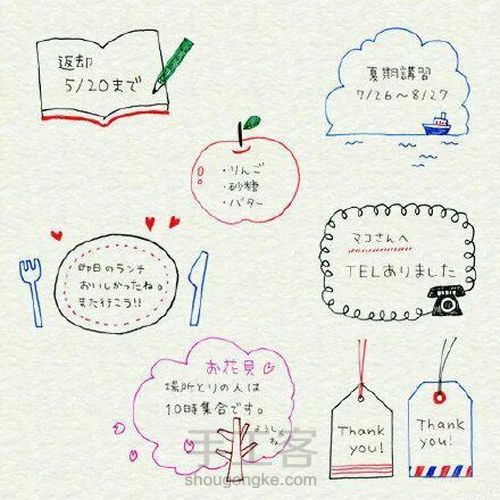 返却
5/20まで
夏期講習
7/26～8/27
・りんご
・砂糖
・バター
マコさんへ
TELありました
昨日のランチ
おいしかったね。
また行こう!!
お花見
場所とりの人は
10時集合です。
よろしくね
Thank
you!
Thank
You!
手工客
shougongke.com